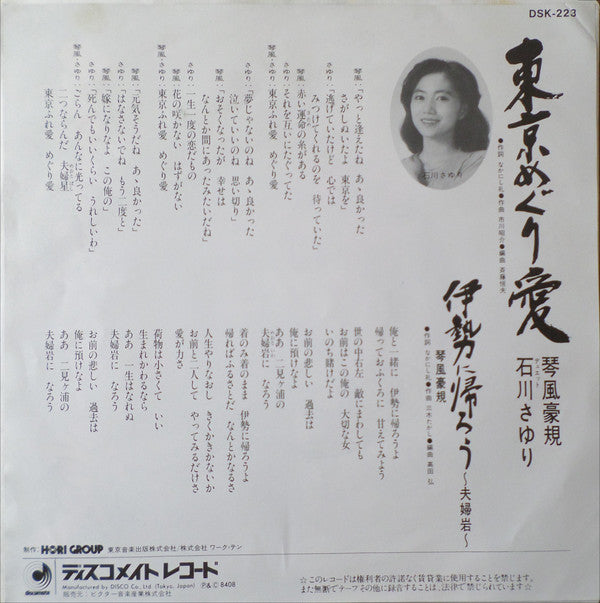 DSK-223
東京めぐり愛
●作詞 なかにし礼●作曲 市川昭介●編曲 斉藤恒夫
琴風豪規
デュエット
石川さゆり
石川さゆり
琴風:「やっと逢えたね あゝ良かった
さがしぬいたよ 東京を」
さゆり:「逃げていたけど 心では
みつけてくれるのを 待っていた」
琴風:赤い運命の糸がある
さゆり:それを互いにたぐってた
琴風・さゆり:東京ふれ愛 めぐり愛
さゆり:「夢じゃないのね あゝ良かった
泣いていいのね 思い切り」
琴風:「おそくなったが 幸せは
なんとか間にあったみたいだね」
さゆり:一生一度の恋だもの
琴風:花の咲かない はずがない
琴風・さゆり:東京ふれ愛 めぐり愛
琴風:「元気そうだね あゝ良かった」
さゆり:「はなさないでね もう二度と」
琴風:「嫁になりなよ この俺の」
さゆり:「死んでもいいくらい うれしいわ」
琴風:ごらん あんなに光ってる
さゆり:二つならんだ 夫婦星
琴風・さゆり:東京ふれ愛 めぐり愛
伊勢に帰ろう
〜夫婦岩〜
琴風豪規
●作詞 なかにし礼●作曲 三木たかし●編曲 高田 弘
俺と一緒に 伊勢に帰ろうよ
帰っておふくろに 甘えてみよう
世の中右左 敵にまわしても
お前はこの俺の 大切な女
いのち賭けだよ
お前の悲しい 過去は
俺に預けなよ
ああ 二見ヶ浦の
夫婦岩に なろう
着のみ着のまま 伊勢に帰ろうよ
帰ればふるさとだ なんとかなるさ
人生やりなおし きくかきかないか
お前と二人して やってみるだけさ
愛が力さ
荷物は小さくて いい
生まれかわるなら
ああ 一生はなれぬ
夫婦岩に なろう
お前の悲しい 過去は
俺に預けなよ
ああ 二見ヶ浦の
夫婦岩に なろう
制作:HORI GROUP 東京音楽出版株式会社/株式会社 ワーク・テン
discomate
ディスコメイト レコード
Manufactured by DISCO Co., Ltd. (Tokyo, Japan) Ⓟ&Ⓒ 8408
販売元:ビクター音楽産業株式会社
☆このレコードは権利者の許諾なく賃貸業に使用することを禁じます。
また無断でテープその他に録音することは、法律で禁じられています。☆